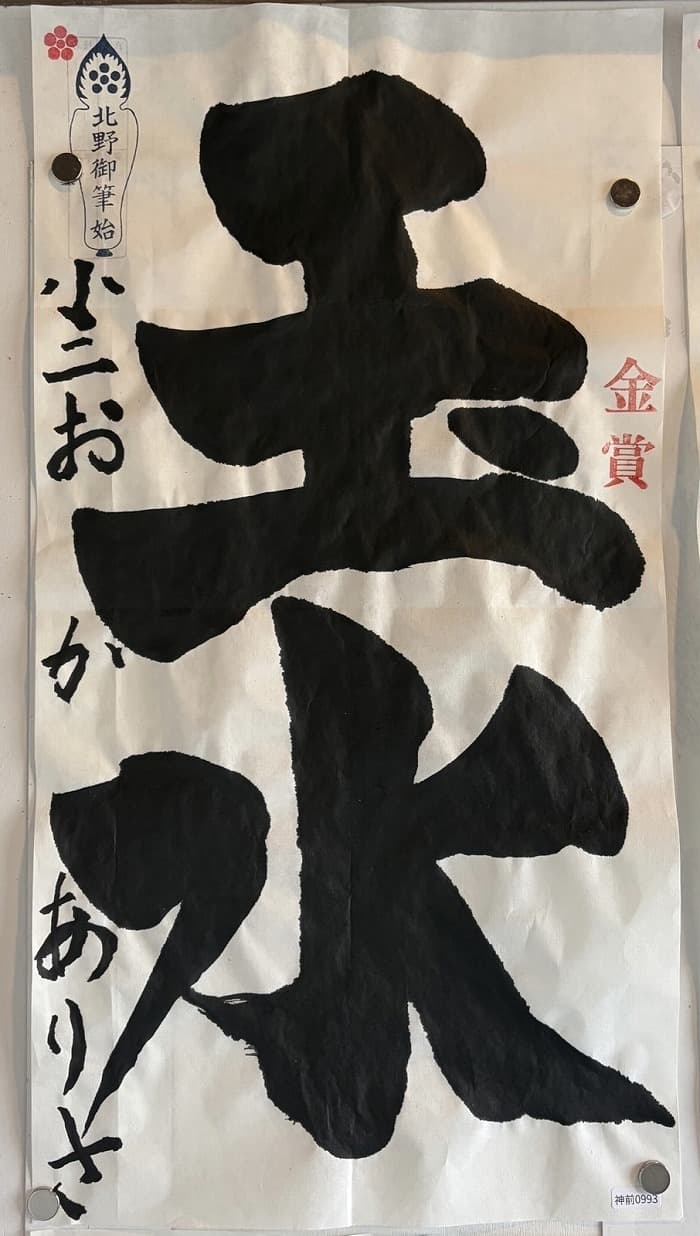 金賞
玉水
北野御筆始
小二おがありさ
神前0993